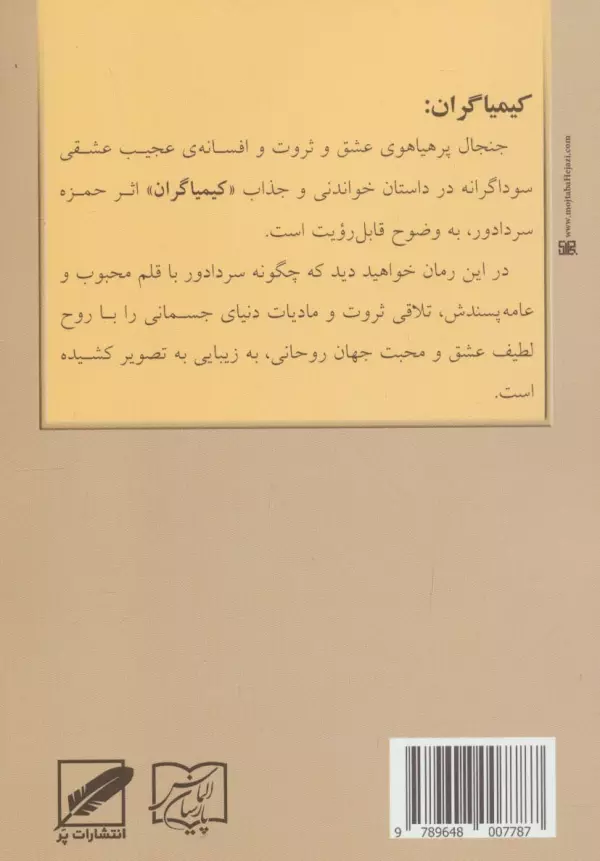 کیمیاگران:
جنجال پرهیاهوی عشق و ثروت و افسانه‌ی عجیب عشقی
سوداگرانه در داستان خواندنی و جذاب «کیمیاگران» اثر حمزه
سردادور، به وضوح قابل‌رؤیت است.
در این رمان خواهید دید که چگونه سردادور با قلم محبوب و
عامه‌پسندش، تلاقی ثروت و مادیات دنیای جسمانی را با روح
لطیف عشق و محبت جهان روحانی، به زیبایی به تصویر کشیده
است.
www.mojtabaHejazi.com
پارسیان الماس
انتشارات پَر
9 789648 007787